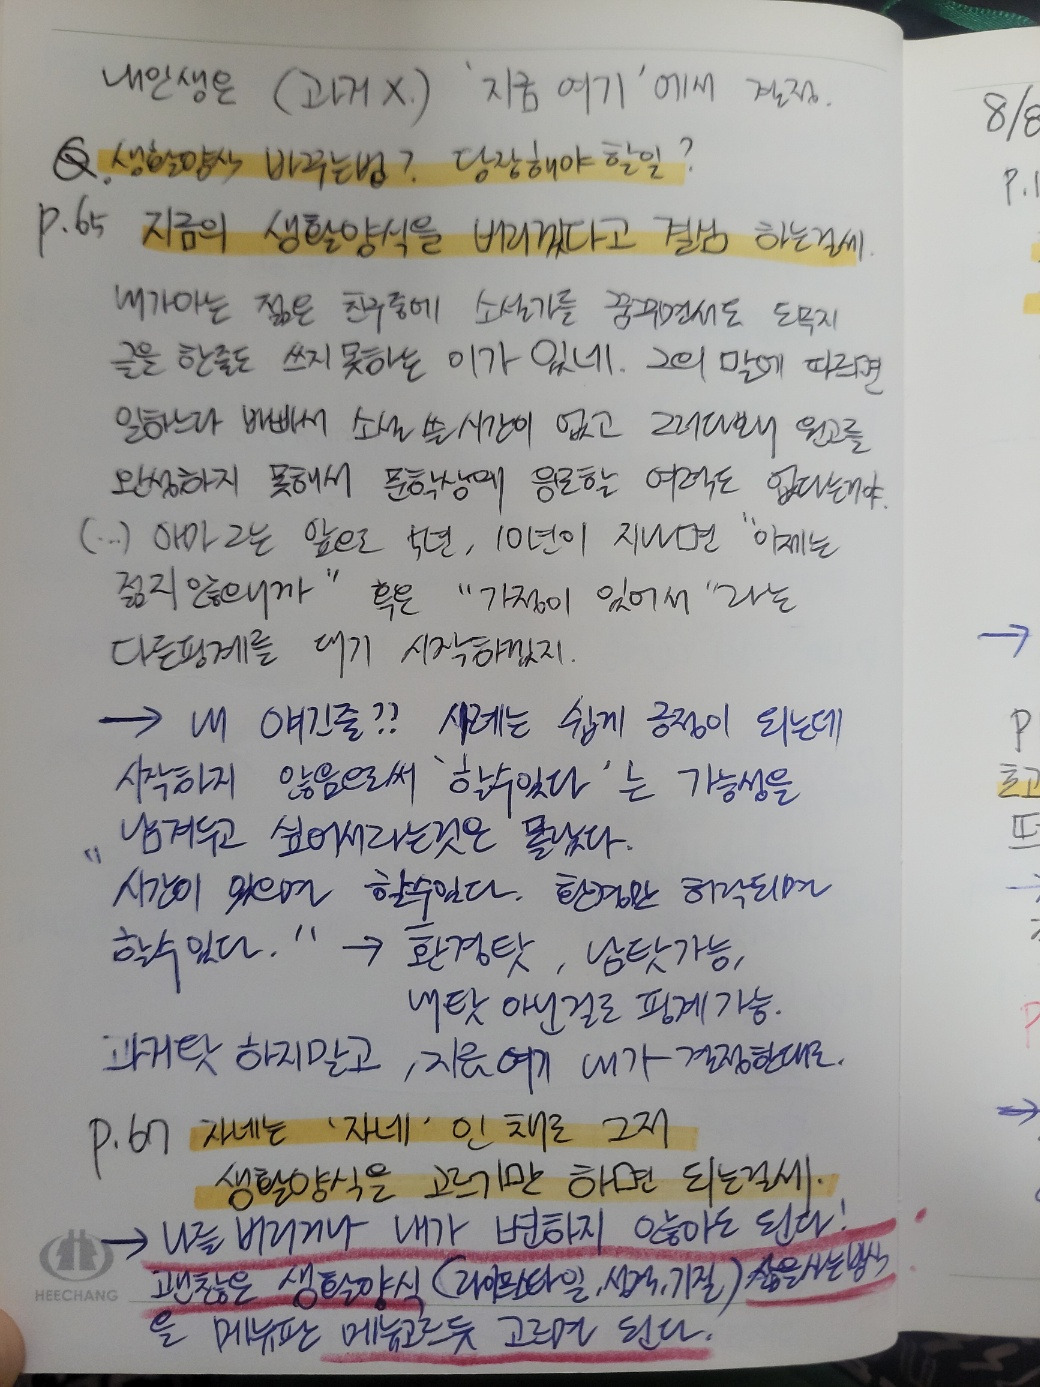 내인생은 (과거X.) '지금 여기'에서 결정.
Q. 생활양식 바꾸는법? 당장해야 할일?
p.65 지금의 생활양식을 버리겠다고 결심 하는걸세.
내가아는 젊은 친구중에 소설가를 꿈꾸면서도 도무지
글을 한줄도 쓰지 못하는 이가 있네. 그의 말에 따르면
일하느라 바빠서 소설 쓸 시간이 없고 그러다보니 원고를
완성하지 못해서 문학상에 응모할 여력도 없다는거야.
(...) 아마 그는 앞으로 5년, 10년이 지나면 "이제는
젊지 않으니까" 혹은 "가정이 있어서"라는
다른핑계를 대기 시작하겠지.
→ 내 얘긴줄?? 사례는 쉽게 긍정이 되는데
시작하지 않음으로써 '할수있다'는 가능성을
남겨두고 싶어서라는것은 몰랐다.
"시간이 있으면 할수있다. 환경만 허락되면
할수있다." → 환경탓, 남탓가능,
내탓 아닌걸로 핑계가능.
과거탓 하지말고, 지금 여기 내가 결정한대로.
p.67 자네는 '자네'인 채로 그저
생활양식을 고르기만 하면 되는걸세.
→ 나를 버리거나 내가 변하지 않아도 된다!
괜찮은 생활양식(라이프스타일, 성격, 기질) 삶을사는방식
을 메뉴판 메뉴고르듯 고르면 된다.
HEECHANG
8/8
p.1
→
P
초고
→
P
→